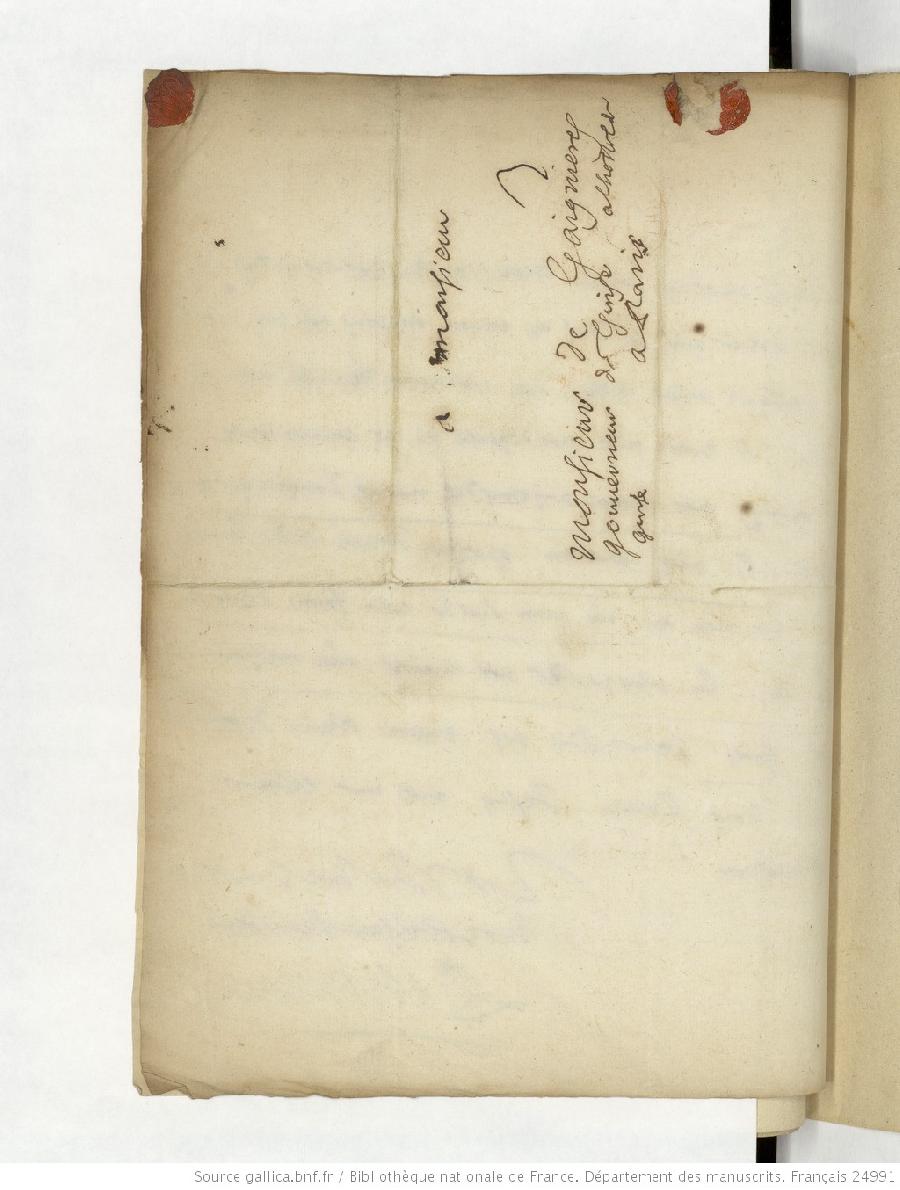 a monsieur
monsieur de Gaigneres
gouuerneur de Guise a lhostel
guise a Paris
Source gallica.bnf.fr / Bibliothèque nationale de France. Département des manuscrits. Français 24991